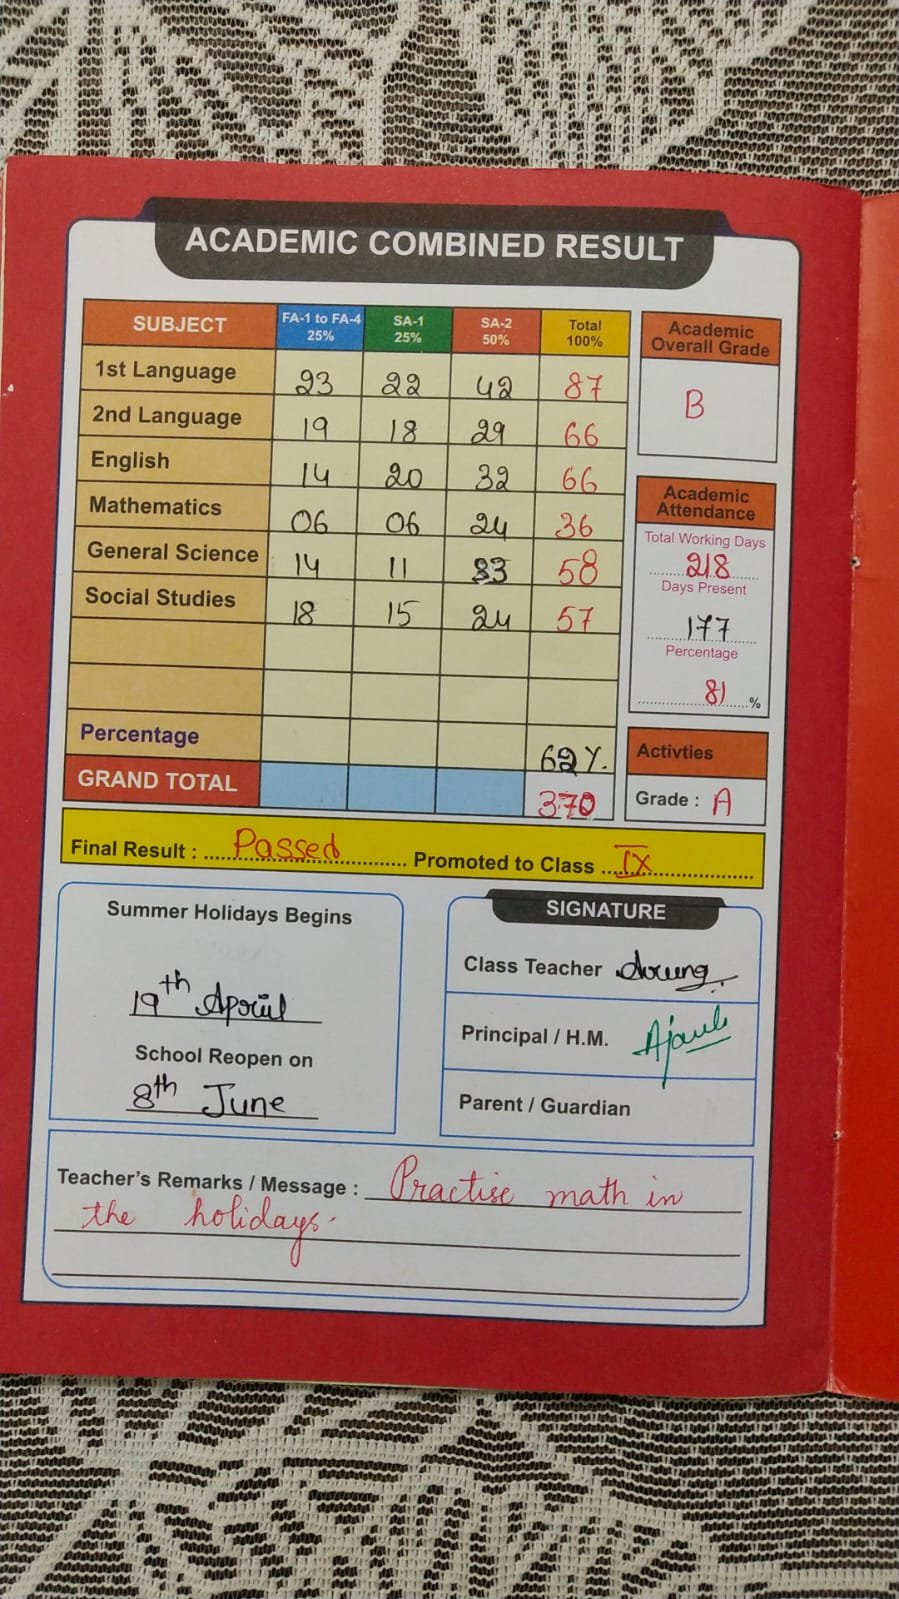 ACADEMIC COMBINED RESULT
SUBJECT FA-1 to FA-4 25% SA-1 25% SA-2 50% Total 100%
1st Language 23 22 42 87
2nd Language 19 18 29 66
English 14 20 32 66
Mathematics 06 06 24 36
General Science 14 11 33 58
Social Studies 18 15 24 57
Percentage 62%.
GRAND TOTAL 370
Academic
Overall Grade
B
Academic
Attendance
Total Working Days
218
Days Present
177
Percentage
81 %
Activties
Grade : A
Final Result : Passed Promoted to Class IX
Summer Holidays Begins
19th April
School Reopen on
8th June
SIGNATURE
Class Teacher
Principal / H.M.
Parent / Guardian
Teacher's Remarks / Message : Practise math in
the holidays.